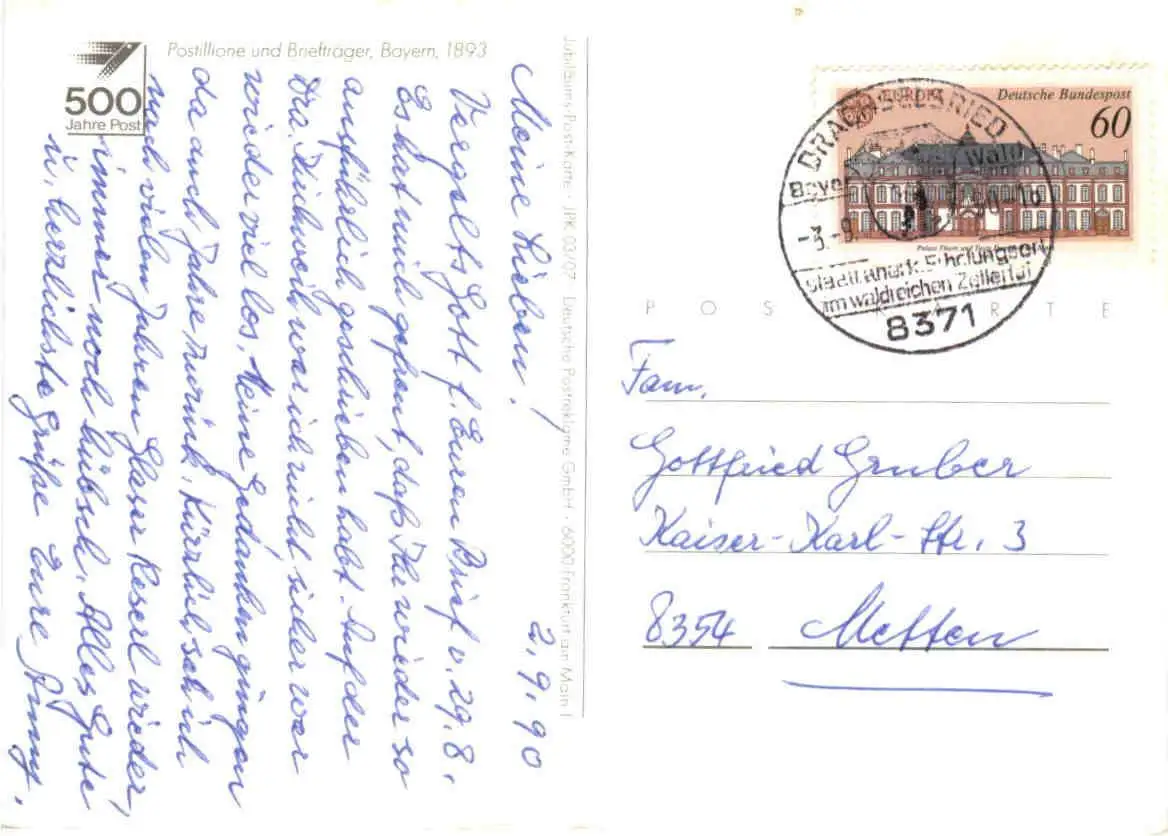 Postillione und Briefträger, Bayern, 1893
500
Jahre Post
2.9.90
Meine Lieben!
Vergelts Gott f. Euren Brief v. 29.8.
Es hat mich gefreut, daß Ihr wieder so
ausführlich geschrieben habt. Auf der
Dra. Kirchweih war ich nicht, sicher war
wieder viel los. Meine Gedanken gingen
da auch Jahre zurück. Kürzlich sah ich
nach vielen Jahren Glaser Reserl wieder,
immer noch hübsch. Alles Gute
u. herzlichste Grüße Eure Anny.
Jubiläums-Post-Karte · JPK 03/07 Deutsche Postreklame GmbH · 6000 Frankfurt am Main 1
EUROPA
Deutsche Bundespost
60
Palais Thurn und Taxis
DRACHSELSRIED
Wald
-3.-9.
Staatl. anerk. Erholungsort
im waldreichen Zellertal
8371
POSTKARTE
Fam.
Gottfried Gruber
Kaiser-Karl-Str. 3
8354 Metten